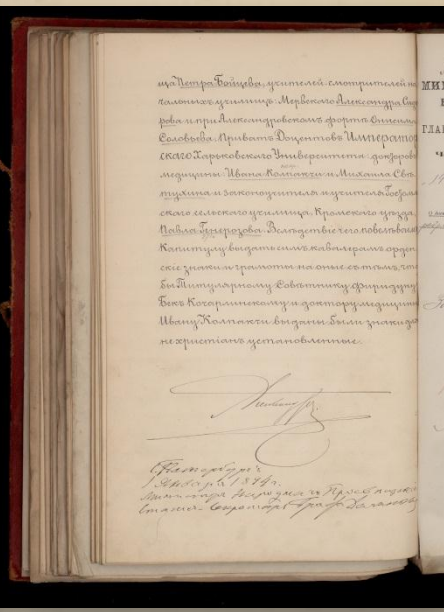 ща Петра Бойцева, учителей-смотрителей на
чальныхъ училищъ: Мервскаго Александра
рова и при Александровскомъ фортѣ
Соловьева, Приватъ-Доцентовъ Император
скаго Харьковскаго Университета, докторовъ
медицины: Ивана Колпакчи и Михаила Свѣ
тухина и законоучителя и учителя
скаго сельскаго училища, Кромскаго уѣзда,
Павла Генерозова. Вслѣдствіе чего повелѣваемъ
Капитулу выдать симъ кавалерамъ орден
скіе знаки и грамоты на оные съ тѣмъ, что
бы Титулярному Совѣтнику Фиридуну
Бекъ Кочарлинскому и доктору медицины
Ивану Колпакчи выданы были знаки для
не христіанъ установленные.
С. Петербургъ
Января 1894 г.
Министръ Народнаго Просвѣщенія
Статсъ-Секретарь Графъ Деляновъ
МИН
ГЛАВ